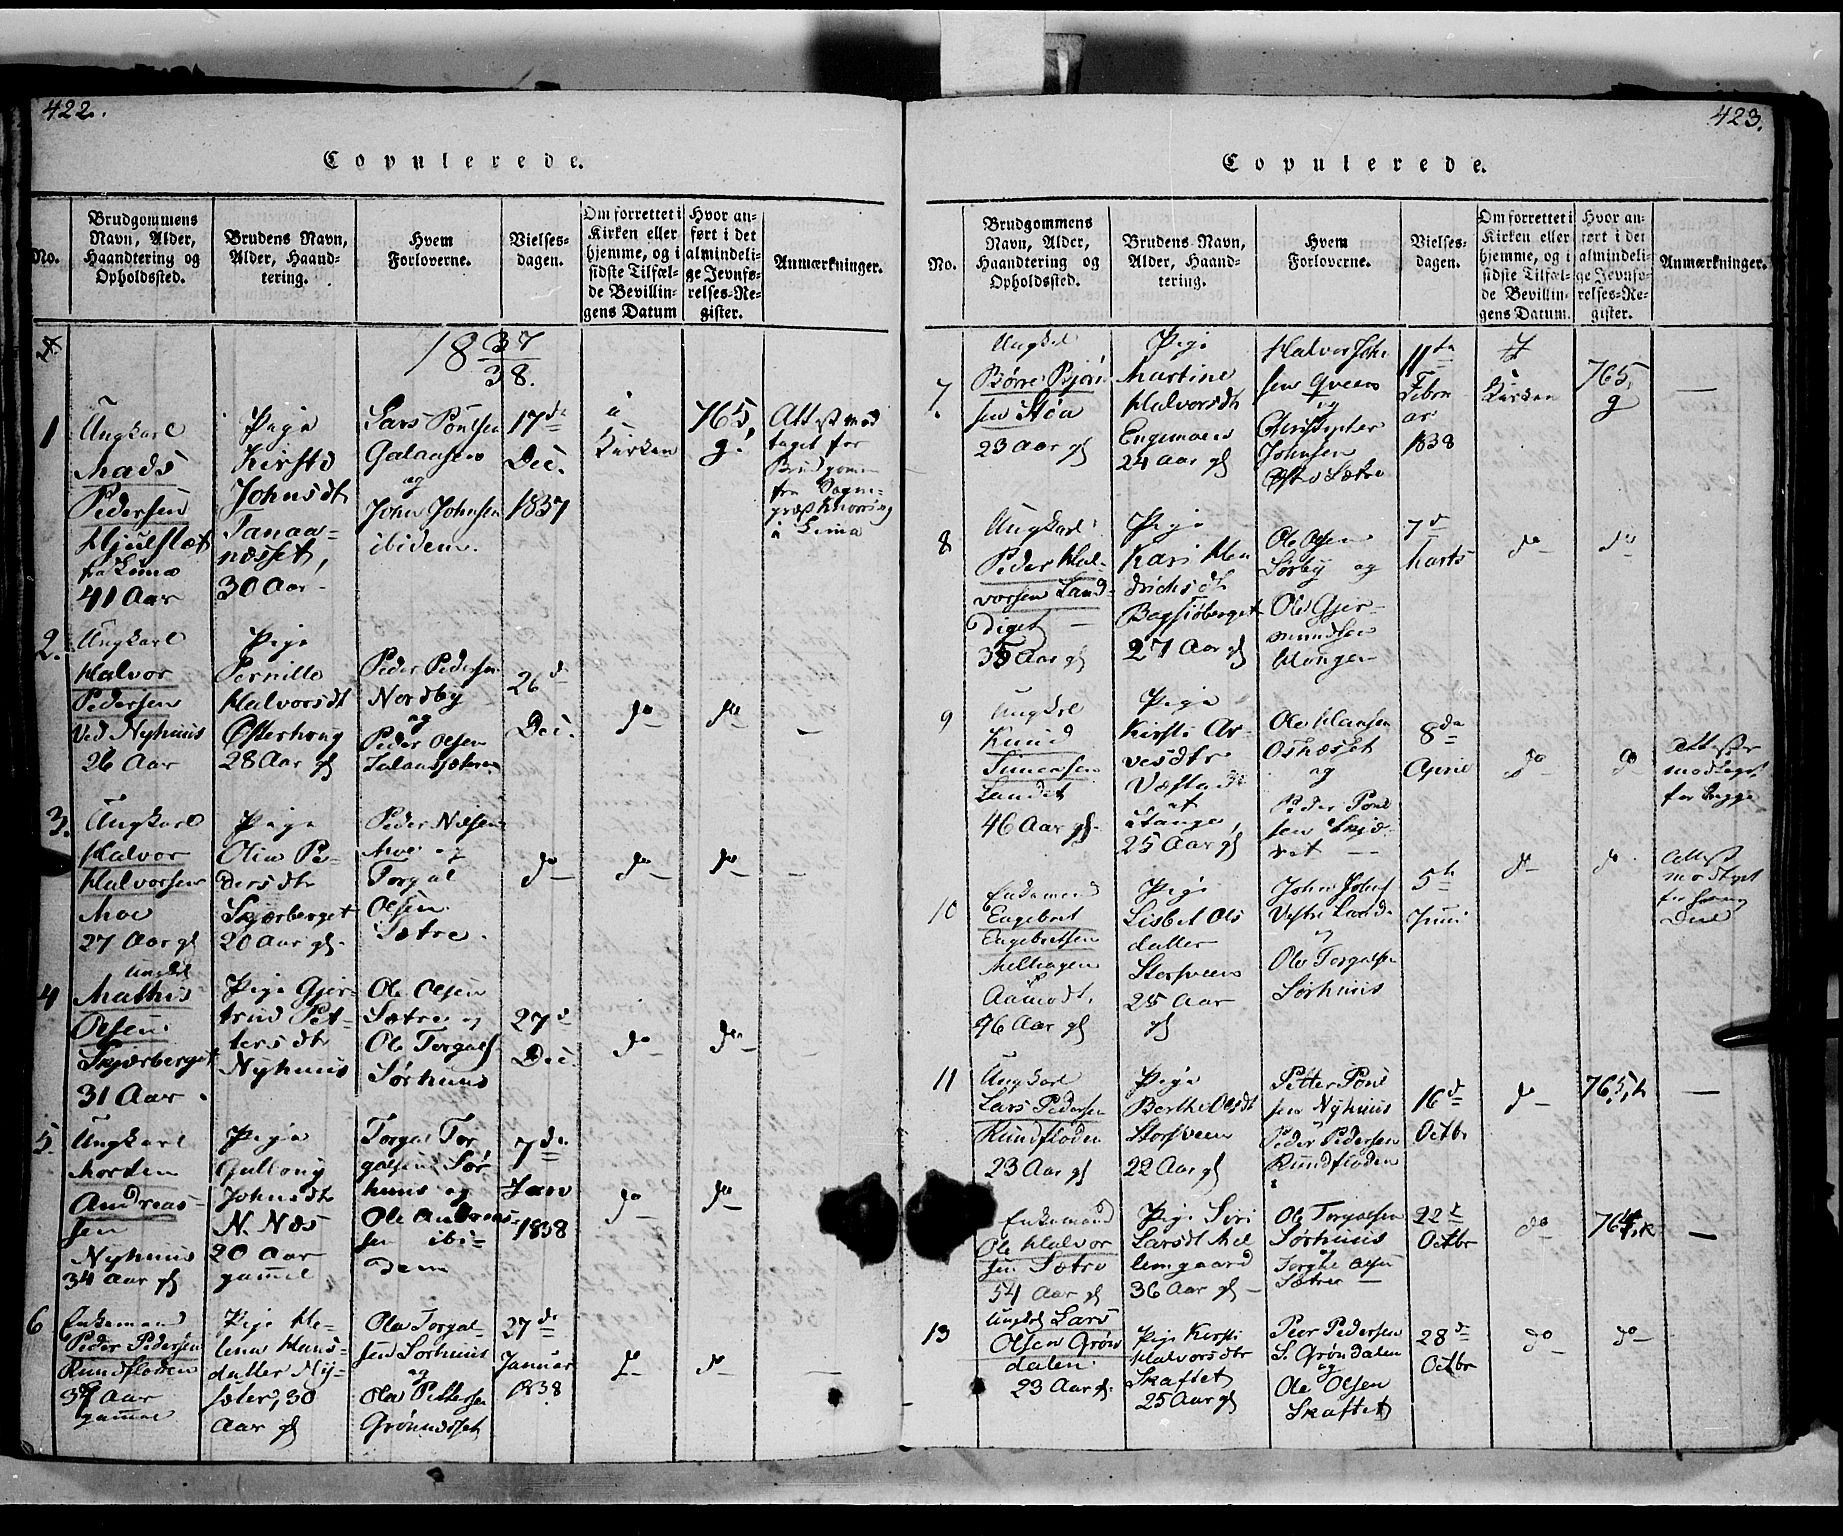 422.
Copulerede.
No.
Brudgommens
Navn, Alder,
Haandtering og
Opholdssted.
Brudens Navn,
Alder, Haand-
tering.
Hvem
Forloverne.
Vielses-
dagen.
Om forrettet i
Kirken eller
hjemme, og i
sidste Tilfæl-
de Bevillin-
gens Datum
Hvor an-
ført i det
almindeli-
ge Jevnfø-
relses-Re-
gister.
Anmærkninger.
1837
38.
1
Ungkarl
Mads
Pedersen
Hjulslæt
fra Lima
41 Aar
Pige
Kirsti
Johnsdt
Tanaa-
næsset,
30 Aar
Lars Poulsen
Galaasen
og
John Johnsen
ibidem.
17de
Dec.
1837
i
Kirken
765,
g.
Attest mod
taget for
Brudgommen
fra Sogne-
præst
i Lima
2.
Ungkarl
Halvor
Pedersen
ved Nyhuus
26 Aar
Pige
Pernille
Halvorsdt
Østerhoug
28 Aar gl
Peder Pedersen
Nordby
og
Peder Olsen
26d
Dec.
do
do
3.
Ungkarl
Halvor
Halvorsen
Moe
27 Aar gl
Pige
Olia Pe-
dersdtr
Skjærberget
20 Aar gl.
Peder Nilsen
Moe og
Torgal
Olsen
Sætre.
do
do
do
4
Ungkl
Mathis
Olsen
Skjærberget
31 Aar.
Pige Gjer-
trud Pet-
tersdtr
Nyhuus
Ole Olsen
Sætre og
Ole Torgals
Sørhuus
27d
Dec
do
do
5.
Ungkarl
Morten
Andreas-
sen
Nyhuus
34 Aar gl
Pige
Gullong
Johnsdtr
N. Næs
20 Aar
gammel
Torgal Tor
galsen Sør
huus og
Ole Andreas-
sen ibi-
dem
7de
Jan
1838
do
do
6
Enkemand
Peder Pedersen
Rundfloden
Aar
gammel
Pige He-
lena Hans
datter Ny-
sæter, 30
Aar gl
Ole Torgal-
sen Sørhuus
og
Ole Pettersen
Grønnæsset
27de
Januar
1838
423.
Copulerede.
No.
Brudgommens
Navn, Alder,
Haandtering og
Opholdssted.
Brudens Navn,
Alder, Haand-
tering.
Hvem
Forloverne.
Vielses-
dagen.
Om forrettet i
Kirken eller
hjemme, og i
sidste Tilfæl-
de Bevillin-
gens Datum.
Hvor an-
ført i det
almindeli-
ge Jevnfø-
relses-Re-
gister.
Anmærkninger.
7.
Ungkl
Børre Bjørn
sen Støa
23 Aar gl
Pige
Martine
Halvorsdt
Engemoen
24 Aar gl
Halvor John
sen Qveen
og
Christopher
Johnsen
Østre Sætre
11te
Febru
ar
1838
i
Kirken
765,
g
8
Ungkarl
Peder Hal-
vorsen Land-
diget
35 Aar gl
Pige
Kari Hen
drichsdt
Bagsiøberget
27 Aar gl
Ole Olsen
Sørby og
Ole Gjer-
mundsen
7d
Marts
do
do
9
Ungkl
Knud
Simensen
Landet
46 Aar gl.
Pige
Kirsti Ar-
vesdtr
Stange,
25 Aar gl
Ole Hansen
Osnæsset
og
Peder Poul
sen Skjæ-
ret
8de
April
do
do
Attester
modtaget
for begge
10
Enkemand
Engebret
Engebretsen
Melhagen
Aamodt,
46 Aar gl
Pige
Lisbet Ols
datter
Storveen
25 Aar
gl
John Johns
Vestre Lande
og
Ole Torgalsen
Sørhuus
5te
Juni
do
do
Attest
modtaget
for
11
Ungkarl
Lars Pedersen
Rundfloden
23 Aar gl
Pige
Berthe Olsdt
Storsveen
22 Aar gl
Petter Poul
sen Nyhuus
Peder Pedersen
Rundfloden
16d
Octbr
do
765, h
Enkemand
Ole Halvor
sen Sætre
54 Aar gl
Pige Siri
Larsdt Mel
lemgaard
36 Aar gl
Ole Torgalsen
Sørhuus
og
Torghe Olsen
Sætre
22d
Octbr
do
764, k
13
Ungkl Lars
Olsen Grøn
dalen
23 Aar gl.
Pige Kirsti
Halvorsdtr
Skaftet
25 Aar gl
Peer Pedersen
S. Grøndalen
og
Ole Olsen
Skaftet
28d
Octbr
do
do